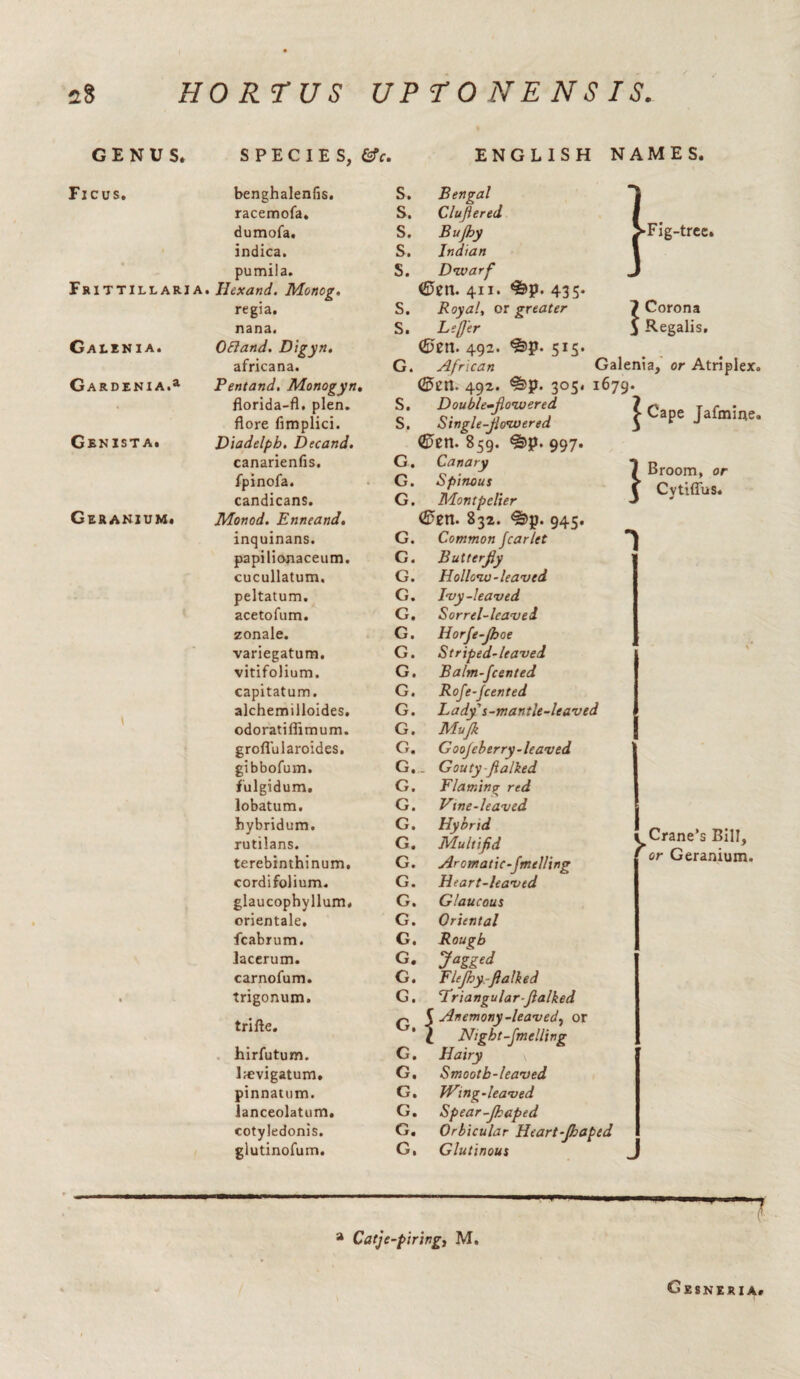 28 HORTUS UPTONENSIS.
GENUS. SPECIES, &c. ENGLISH NAMES.
Ficus. benghalenſis. S. Bengal
racemoſa. S. Cluſtered
dumoſa. S. Buſhy } Fig-tree.
indica. S. Indian
pumila. S. Dwarf
Frittillaria. Hexand. Monog. Gen. 411. Sp. 435.
regia. S. Royal, or greater } Corona
nana. S. Leſſer } Regalis.
Galenia. Octand. Digyn. Gen. 492. Sp. 515.
africana. G. African Galenia, or Atriplex.
Gardenia.a Pentand. Monogyn. Gen. 492. Sp. 305. 1679.
florida-fl. plen. S. Double-flowered } Cape Jaſmine.
flore ſimplici. S. Single-flowered
Genista. Diadelph. Decand. Gen. 859. Sp. 997.
canarienſis. G. Canary } Broom, or
ſpinoſa. G. Spinous } Cytiſſus.
candicans. G. Montpelier
Geranium. Monod. Enneand. Gen. 832. Sp. 945.
inquinans. G. Common ſcarlet
papilionaceum. G. Butterfly
cucullatum. G. Hollow-leaved
peltatum. G. Ivy-leaved
acetoſum. G. Sorrel-leaved
zonale. G. Horſe-ſhoe
variegatum. G. Striped-leaved
vitifolium. G. Balm-ſcented
capitatum. G. Roſe-ſcented
alchemilloides. G. Lady's-mantle-leaved
odoratiſſimum. G. Muſk
groſſularoides. G. Gooſeberry-leaved
gibboſum. G. Gouty-ſtalked
fulgidum. G. Flaming red
lobatum. G. Vine-leaved
hybridum. G. Hybrid
rutilans. G. Multifid } Crane's Bill,
terebinthinum. G. Aromatic-ſmelling or Geranium.
cordifolium. G. Heart-leaved
glaucophyllum. G. Glaucous
orientale. G. Oriental
ſcabrum. G. Rough
lacerum. G. Jagged
carnoſum. G. Fleſhy-ſtalked
trigonum. G. Triangular-ſtalked
triſte. G. { Anemony-leaved, or
Night-ſmelling
hirſutum. G. Hairy
lævigatum. G. Smooth-leaved
pinnatum. G. Wing-leaved
lanceolatum. G. Spear-ſhaped
cotyledonis. G. Orbicular Heart-ſhaped
glutinoſum. G. Glutinous
a Catje-piring, M.
Gesneria.